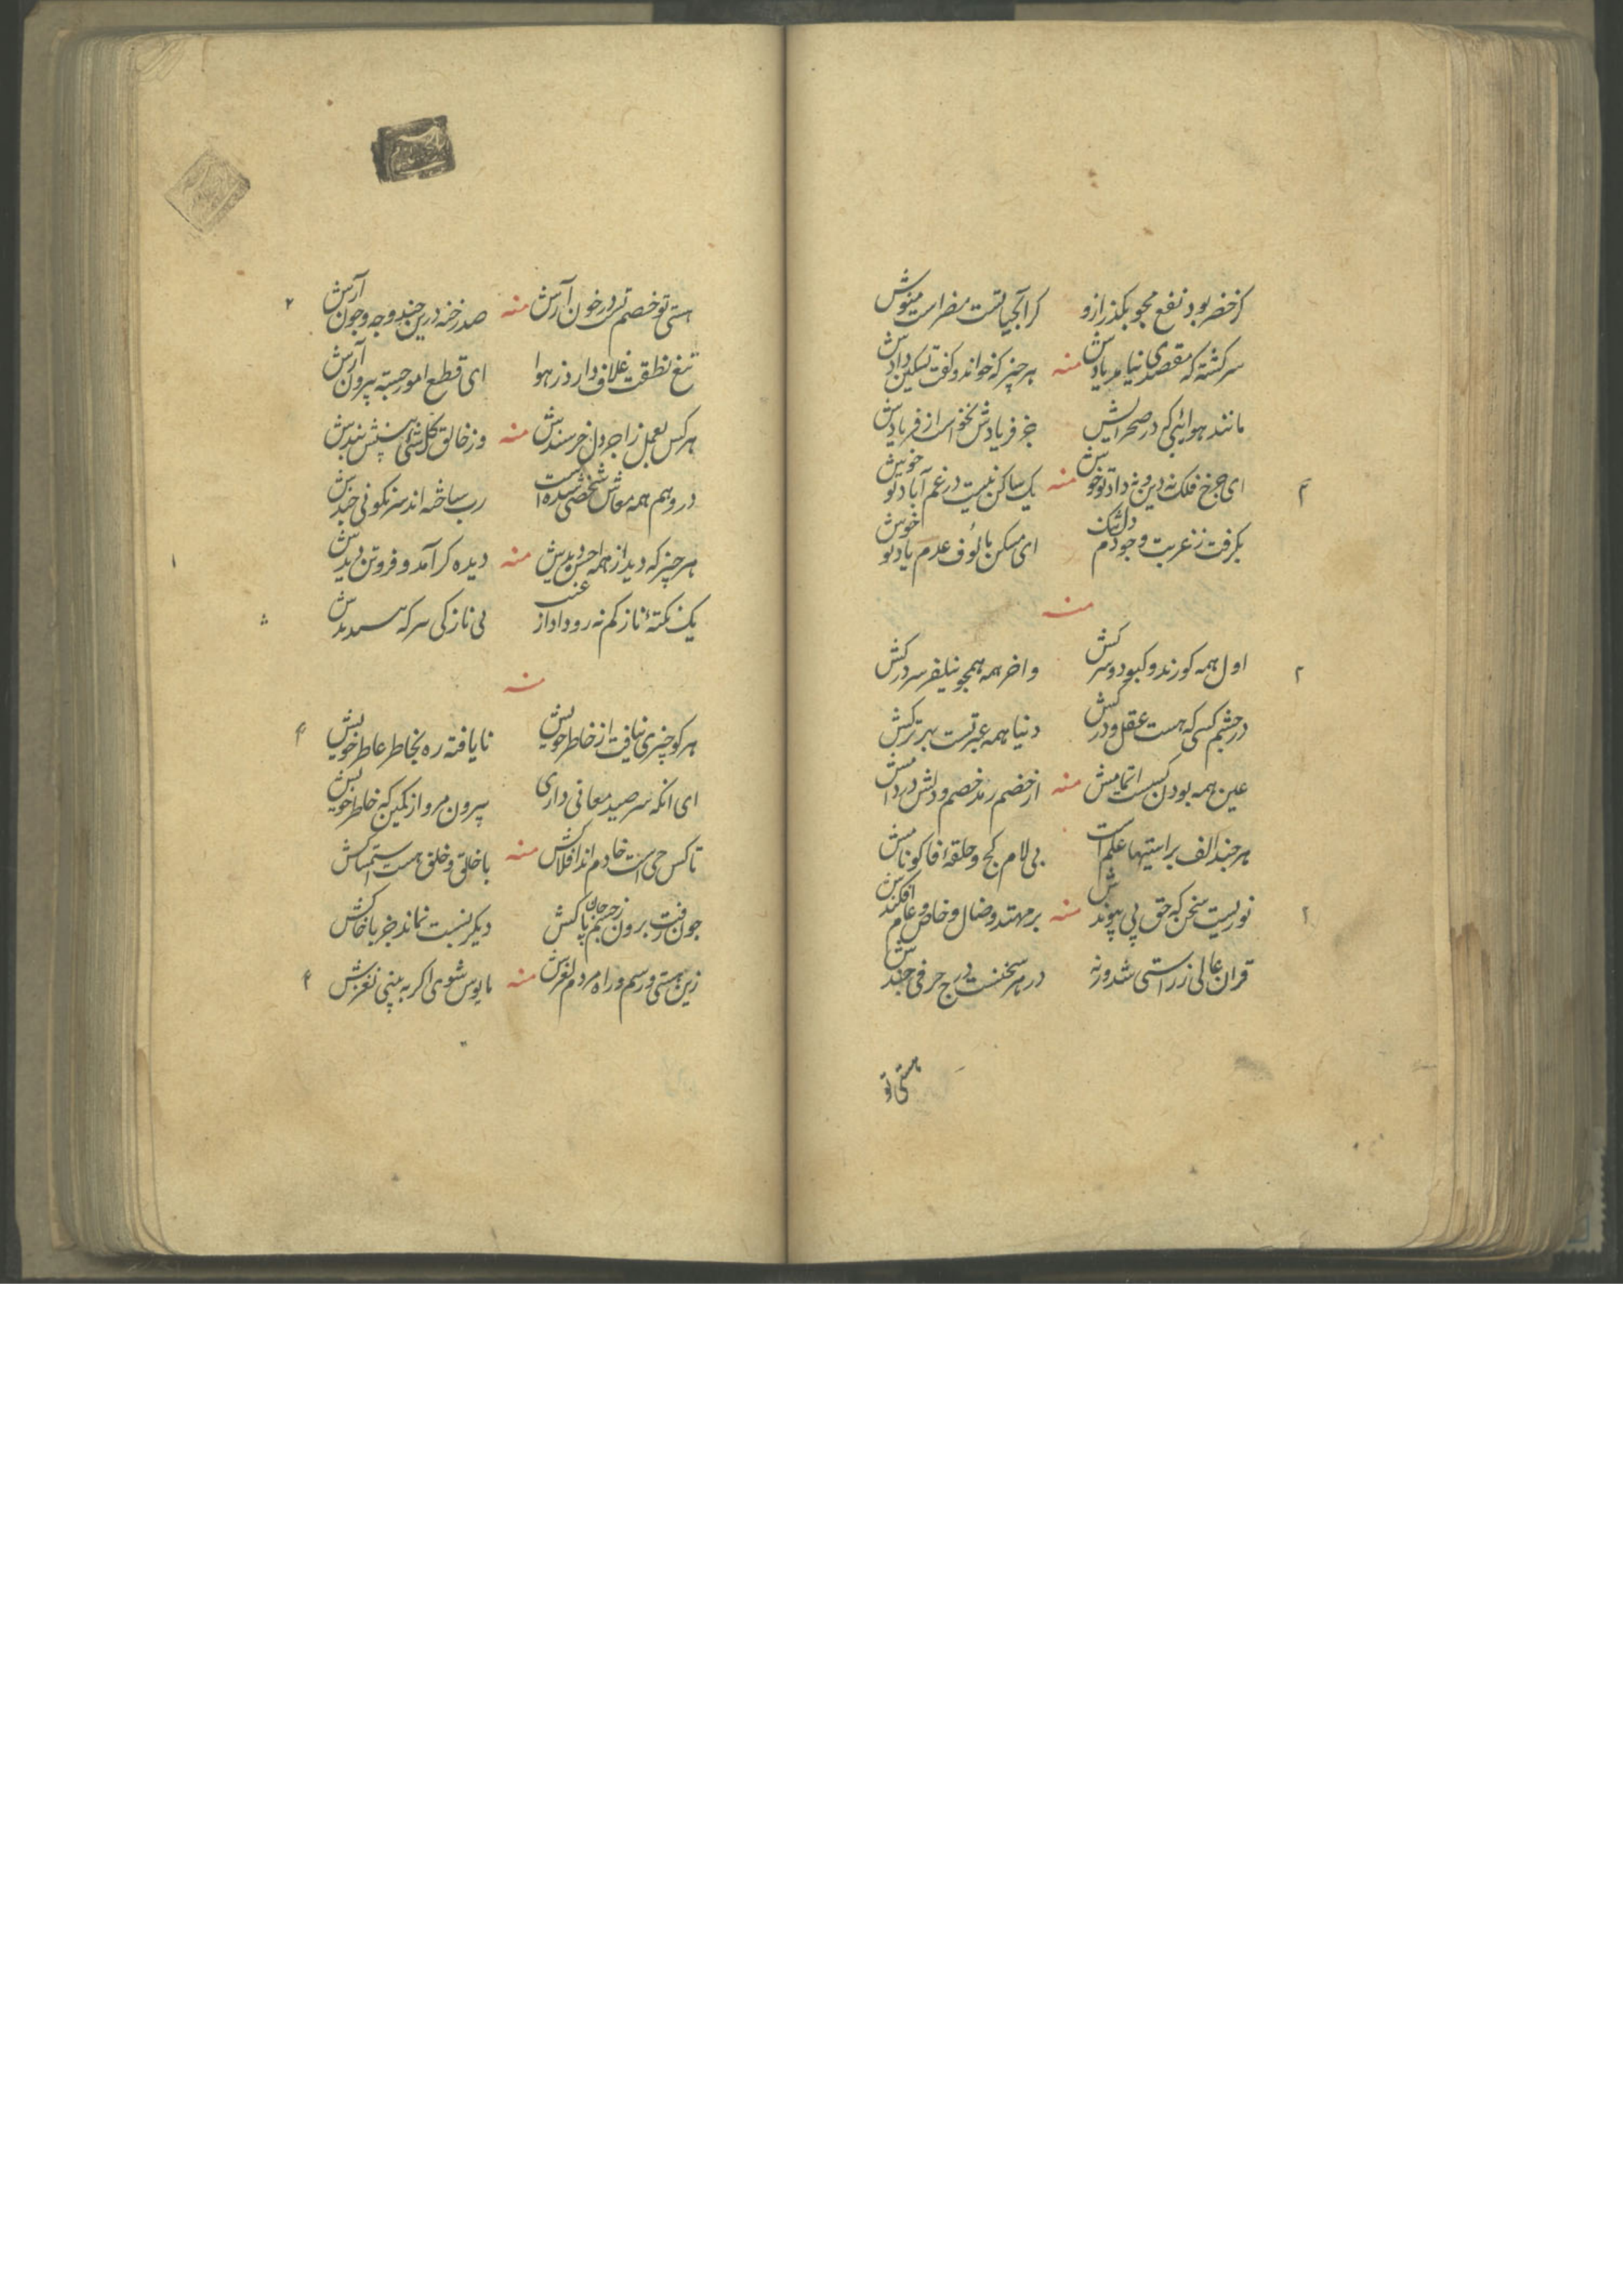 کز خضر بود نفع مجو بگذر ازو کر آبحیاتست مضراست منوش
سرکشته که مقصدی نیامد یادش منه هر چیز که خواند و کفت تسکین دادش
مانند هوائی که در صحرایش جز فریادش نخواست از فریادش
ای چرخ فلک نه دین و نه داد تو خوش منه یک ساکن نیست در غم آباد تو خوش
بکرفت ز غربت وجودم دلتنک ای مسکن مألوف عدم یاد تو خوش
منه
اول همه کورند و کبود و سرکش و اخر همه همجو نیلفر سر درکش
در چشم کسی که هست عقل و درکش دنیا همه عبرتست بهر ترکش
عین همه بودن کسست اتمامش منه از خصم رمد خصم و دلش در دامش
هر چند الف براستیها علم است بی لام کج و حلقهٔ فا کو نامش
نوریست سخن که حق پی پیوندش منه بر مهتد و ضال و خاص و عام افکندش
قران عالی ز راستی شد ور نه در هر سخنست درج حرفی چندش
هستی تو
هستی تو خصم تست در خون آرش منه صد رخنه درین چند و چه و چون آرش
تیغ نطقت غلاف دارد ز هوا ای قطع امور جسته بیرون آرش
هر کس بعمل ز اجر دل خرسندش منه وز خالق کل شی
در وهم همه معاش شخصی شده است رب ساخته اند سرنکونی چندش
هر چیز که دید از همه احسن دیدش منه دیده کر آمد و فروتن دیدش
یک نکتهٔ ناز کم نه رو داد از عنب بی نازکی سرکه
منه
هر کو چیزی نیافت از خاطر خویش نایافته ره بخاطر عاطر خویش
ای انکه سر صید معانی داری بیرون مرو از کمین که خاطر خویش
تا کس حی است خادم اند افلاکش منه با خلق و خلق هست استمساکش
جون رفت برون ز جسم جان پاکش دیکر نسبت نماند جز با خاکش
زین هستی و رسم و راه مردم لغزش منه مایوس شوی اکر به بینی نغزش